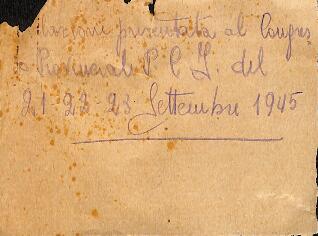 lazione presentata al Congres
so Provincial P C I. del
21-22-23 Settembre 1945